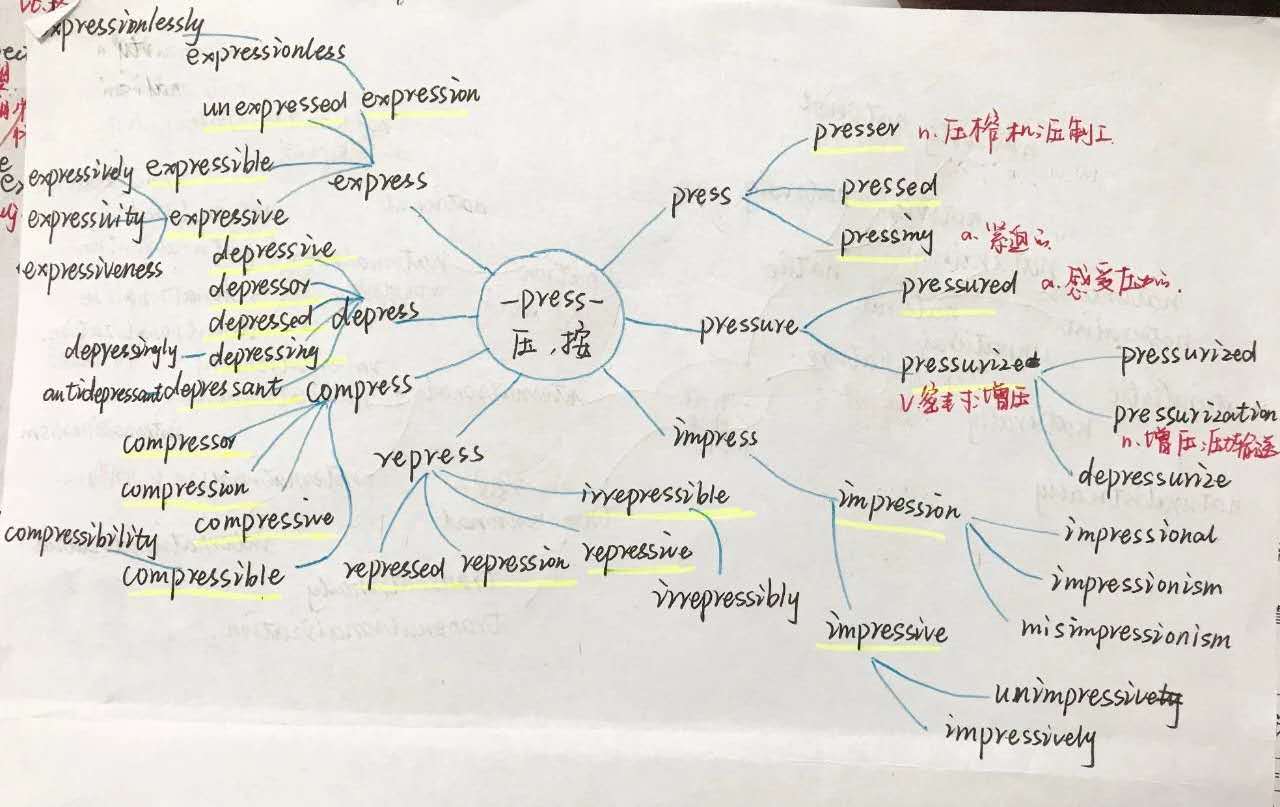 -press-
压,按
express
expression
expressionless
xpressionlessly
unexpressed
expressible
expressive
expressively
expressivity
expressiveness
depress
depressive
depressor
depressed
depressing
depressingly
depressant
antidepressant
compress
compressor
compression
compressive
compressible
compressibility
repress
repressed
repression
repressive
irrepressible
irrepressibly
impress
impression
impressional
impressionism
misimpressionism
impressive
unimpressive
impressively
pressure
pressured a.感受压力的.
pressurize
V密封;增压
pressurized
pressurization
n.增压;压力输送
depressurize
press
presser n.压榨机;压制工
pressed
pressing a.紧迫的